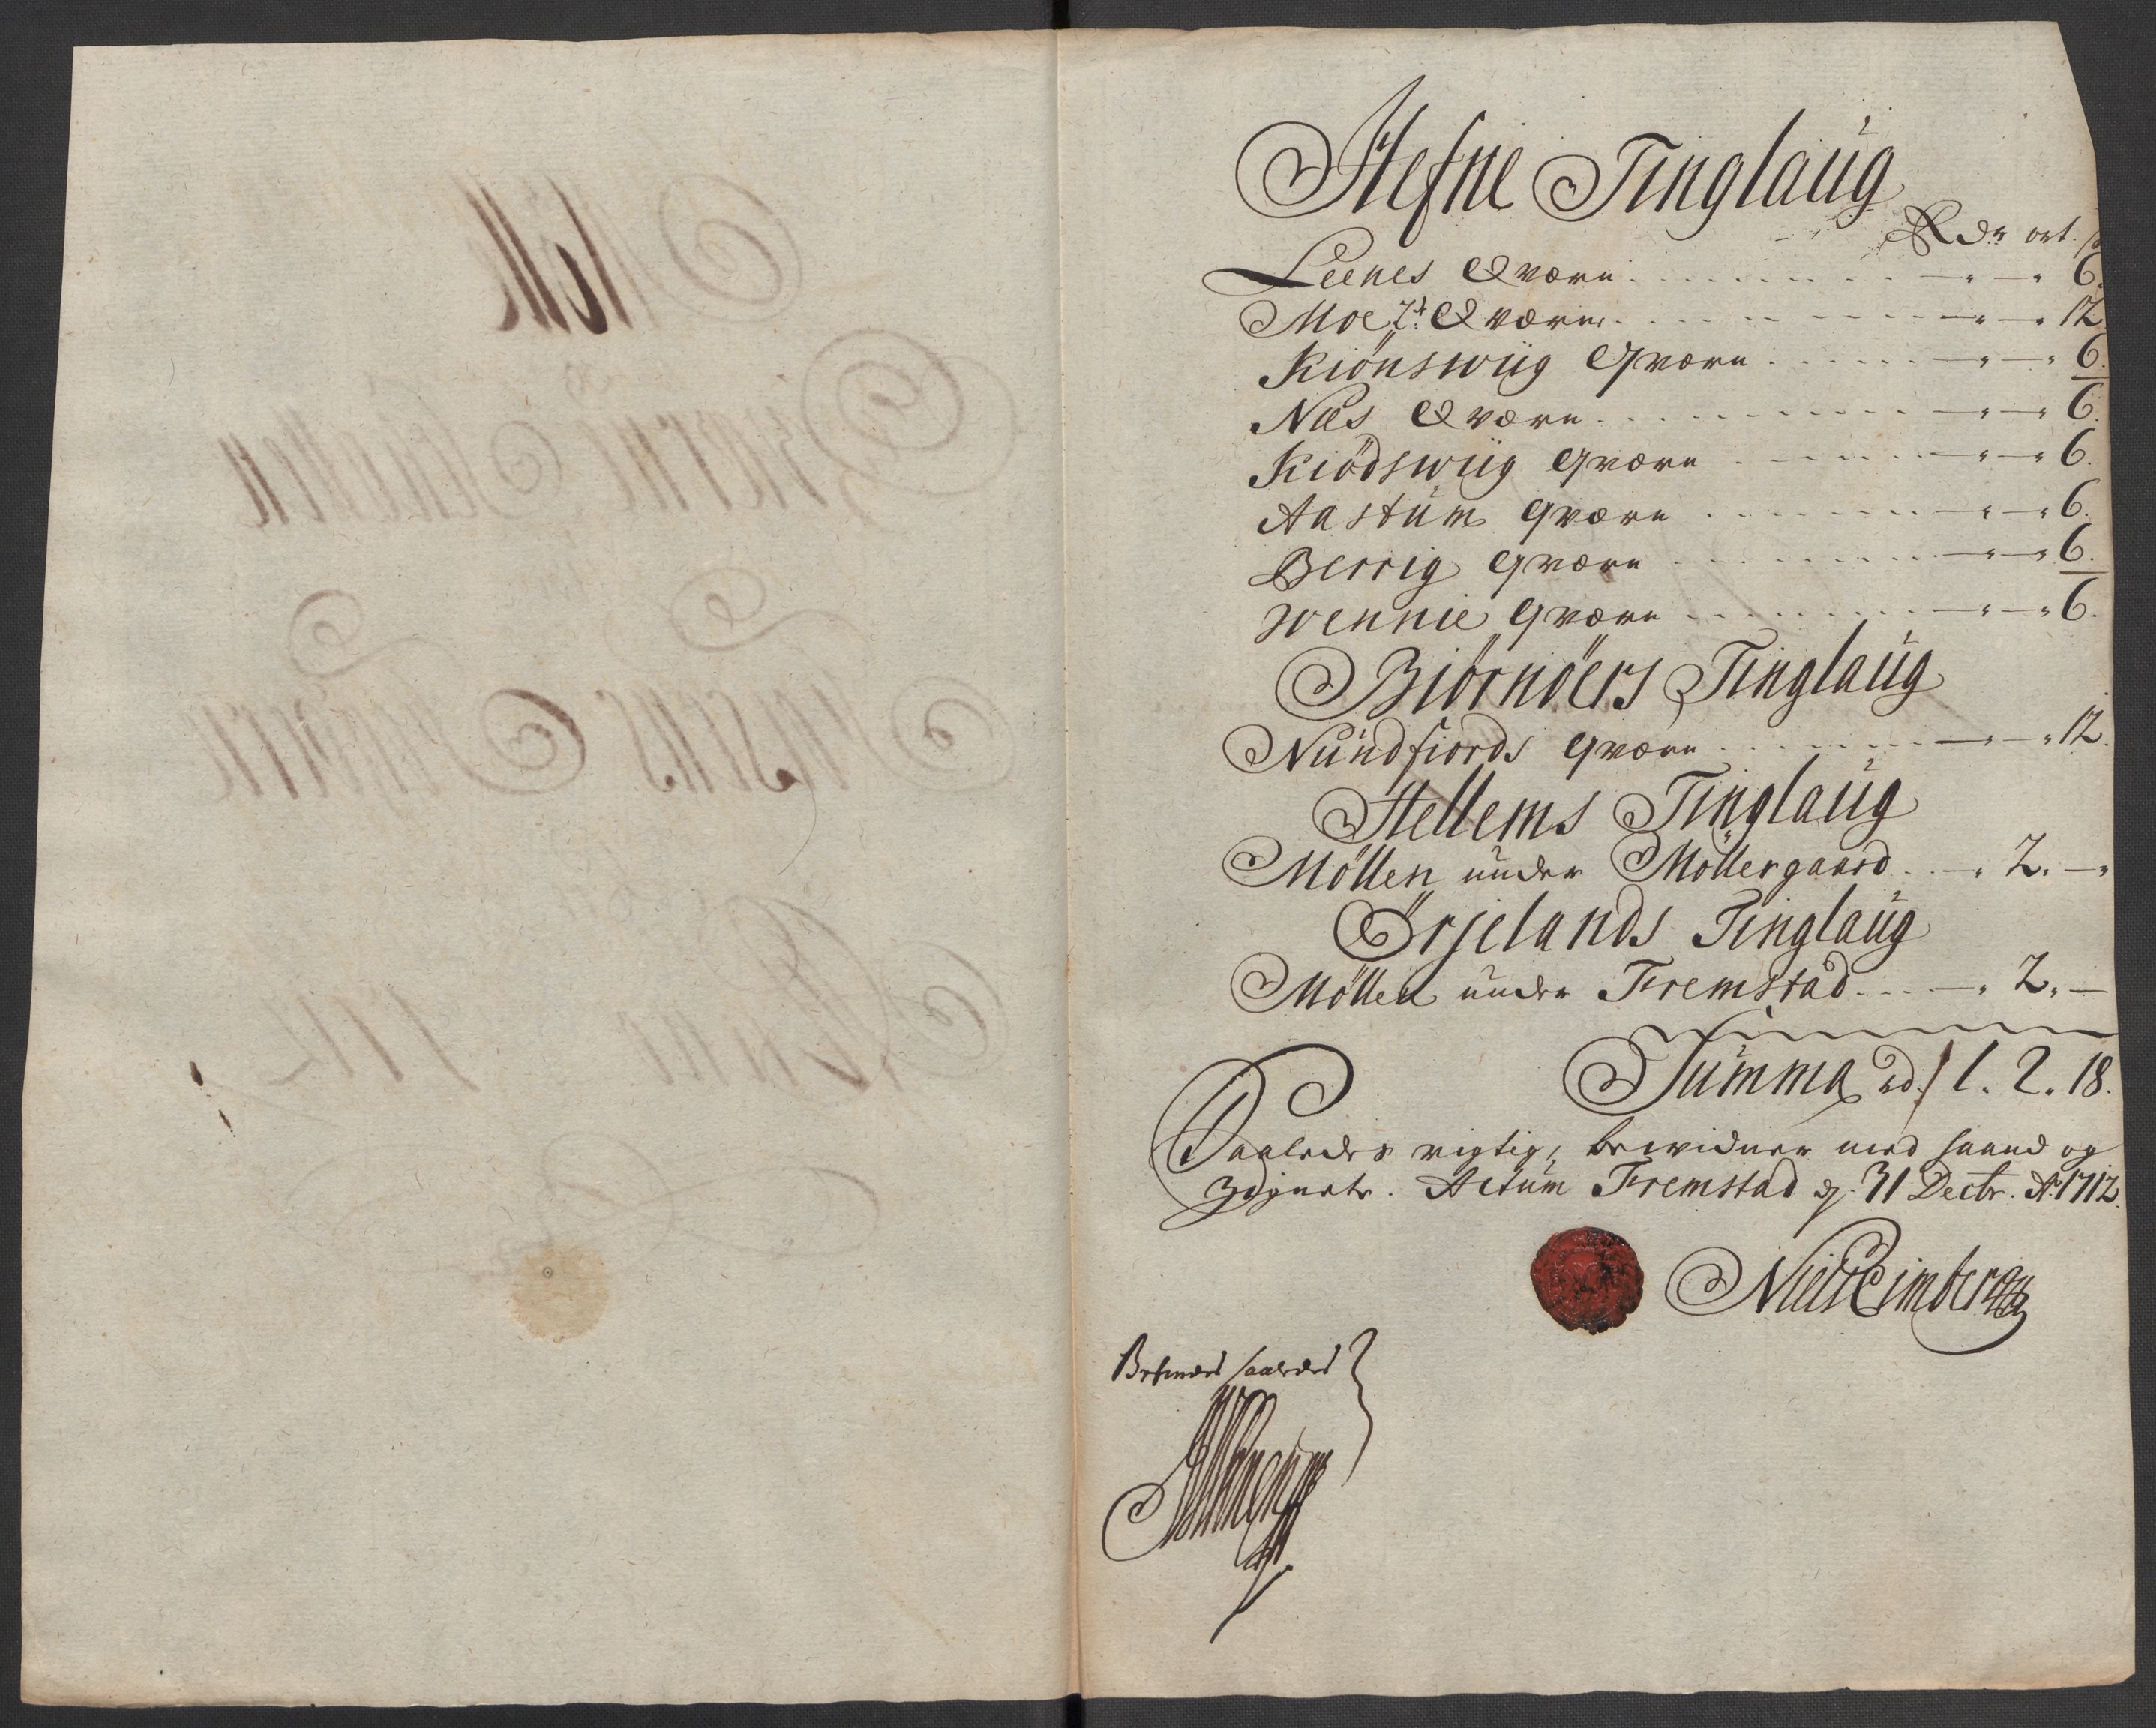 Hefne Tinglaug
Rdr ort ß
Leenes Qværn - " - " 6.
Moe 2de Qværne - " - " 12
Kiönswiig Qværn - " - " 6.
Næs Qværn - " - " 6.
Kiödswiig Qværn - " - " 6.
Aastum Qværn - " - " 6.
Berrig Qværn - " - " 6.
Wennie Qværn - " - " 6.
Biörnöers Tinglaug
Nündfiords Qværn - " - " 12.
Hellems Tinglaug
Möllen under Möllergaard - " 2. - "
Örjelands Tinglaug
Möllen under Fremstad - " 2. -
Summa rd. 1. 2. 18.
Saaledes rigtig, bewidner med haand og
Zignete. Actum Fremstad d. 31 Decbr. Ao 1712.
Niels Eimberg
Bekiendes saaledes